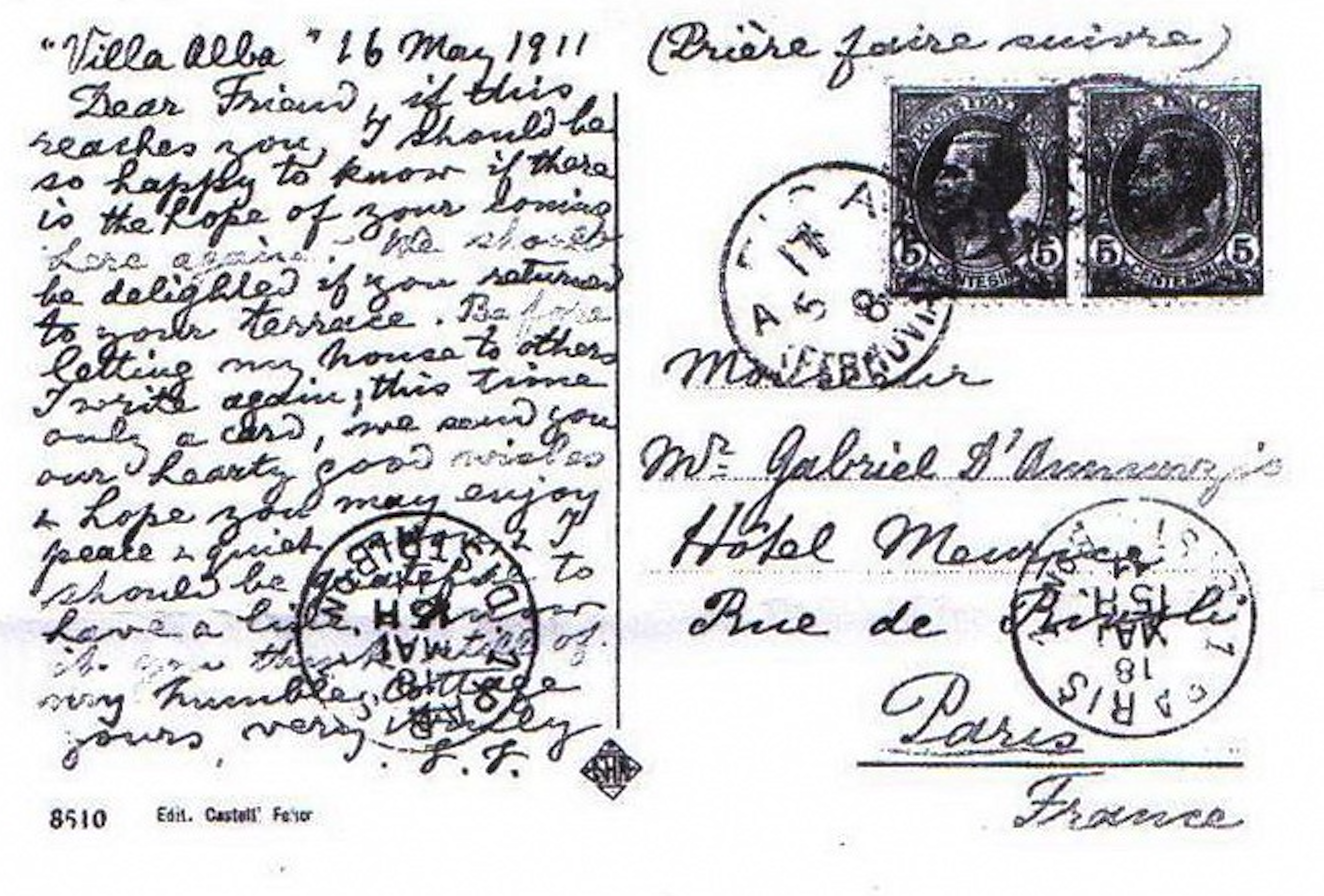 "Villa Alba" 16 May 1911
Dear Friend, if this
reaches you, I should be
so happy to know if there
is the hope of your coming
here again. We should
be delighted if you returned
to your terrace. Before
letting my house to others
I write again, this time
only a card, we send you
our hearty good wishes
& hope you may enjoy
peace & quiet
should be grateful to
have a
it. you think still of
my humble cottage
yours very truly
8510 Edit. Castell'
SHN
(Prière faire suivre)
5 5 5 5
CENTESIMI CENTESIMI
17
5
Monsieur
Mr. Gabriel D'Annunzio
Hôtel Meurice
Rue de Rivoli
Paris
France
PARIS
18
MAI
15 H